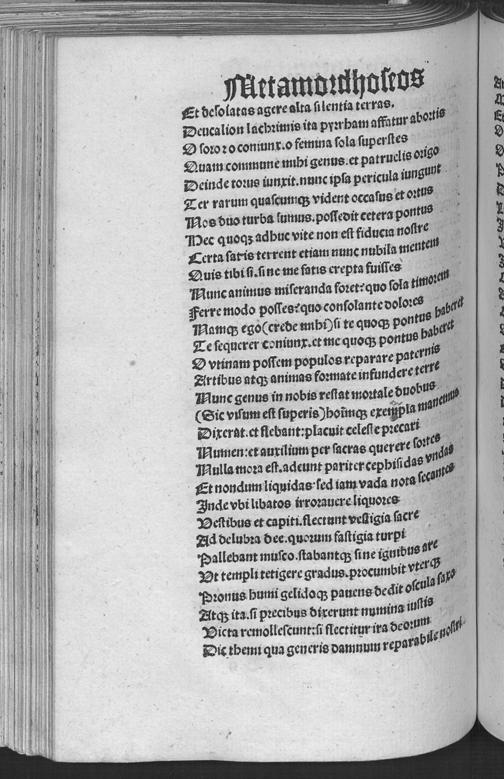 Metamordhoseos
Et desolatas agere alta silentia terras.
Deucalion lachrimis ita pyrrham affatur abortis
O soror o coniunx. o femina sola superstes
Quam commune mihi genus. et patruelis origo
Deinde torus iunxit. nunc ipsa pericula iungunt
Ter rarum quascumqꝫ vident occasus et ortus
Nos duo turba sumus. possedit cetera pontus
Nec quoqꝫ adhuc vite non est fiducia nostre
Certa satis terrent etiam nunc nubila mentem
Quis tibi si. sine me fatis erepta fuisses
Nunc animus miseranda foret? quo sola timorem
Ferre modo posses? quo consolante dolores
Namqꝫ ego (crede mihi) si te quoqꝫ pontus haberet
Te sequerer coniunx. et me quoqꝫ pontus haberet
O vtinam possem populos reparare paternis
Artibus atqꝫ animas formate infundere terre
Nunc genus in nobis restat mortale duobus
(Sic visum est superis) hoīmqꝫ exempla manemus
Dixerat. et flebant: placuit celeste precari
Numen: et auxilium per sacras querere sortes
Nulla mora est. adeunt pariter cephisidas vndas
Et nondum liquidas. sed iam vada nota secantes
Inde vbi libatos irrorauere liquores
Vestibus et capiti. flectunt vestigia sacre
Ad delubra dee. quorum fastigia turpi
Pallebant musco. stabantqꝫ sine ignibus are
Vt templi tetigere gradus. procumbit vterqꝫ
Pronus humi gelidoqꝫ pauens dedit oscula saxo
Atqꝫ ita. si precibus dixerunt numina iustis
Victa remollescunt: si flectitur ira deorum
Dic themi qua generis damnum reparabile nostri.